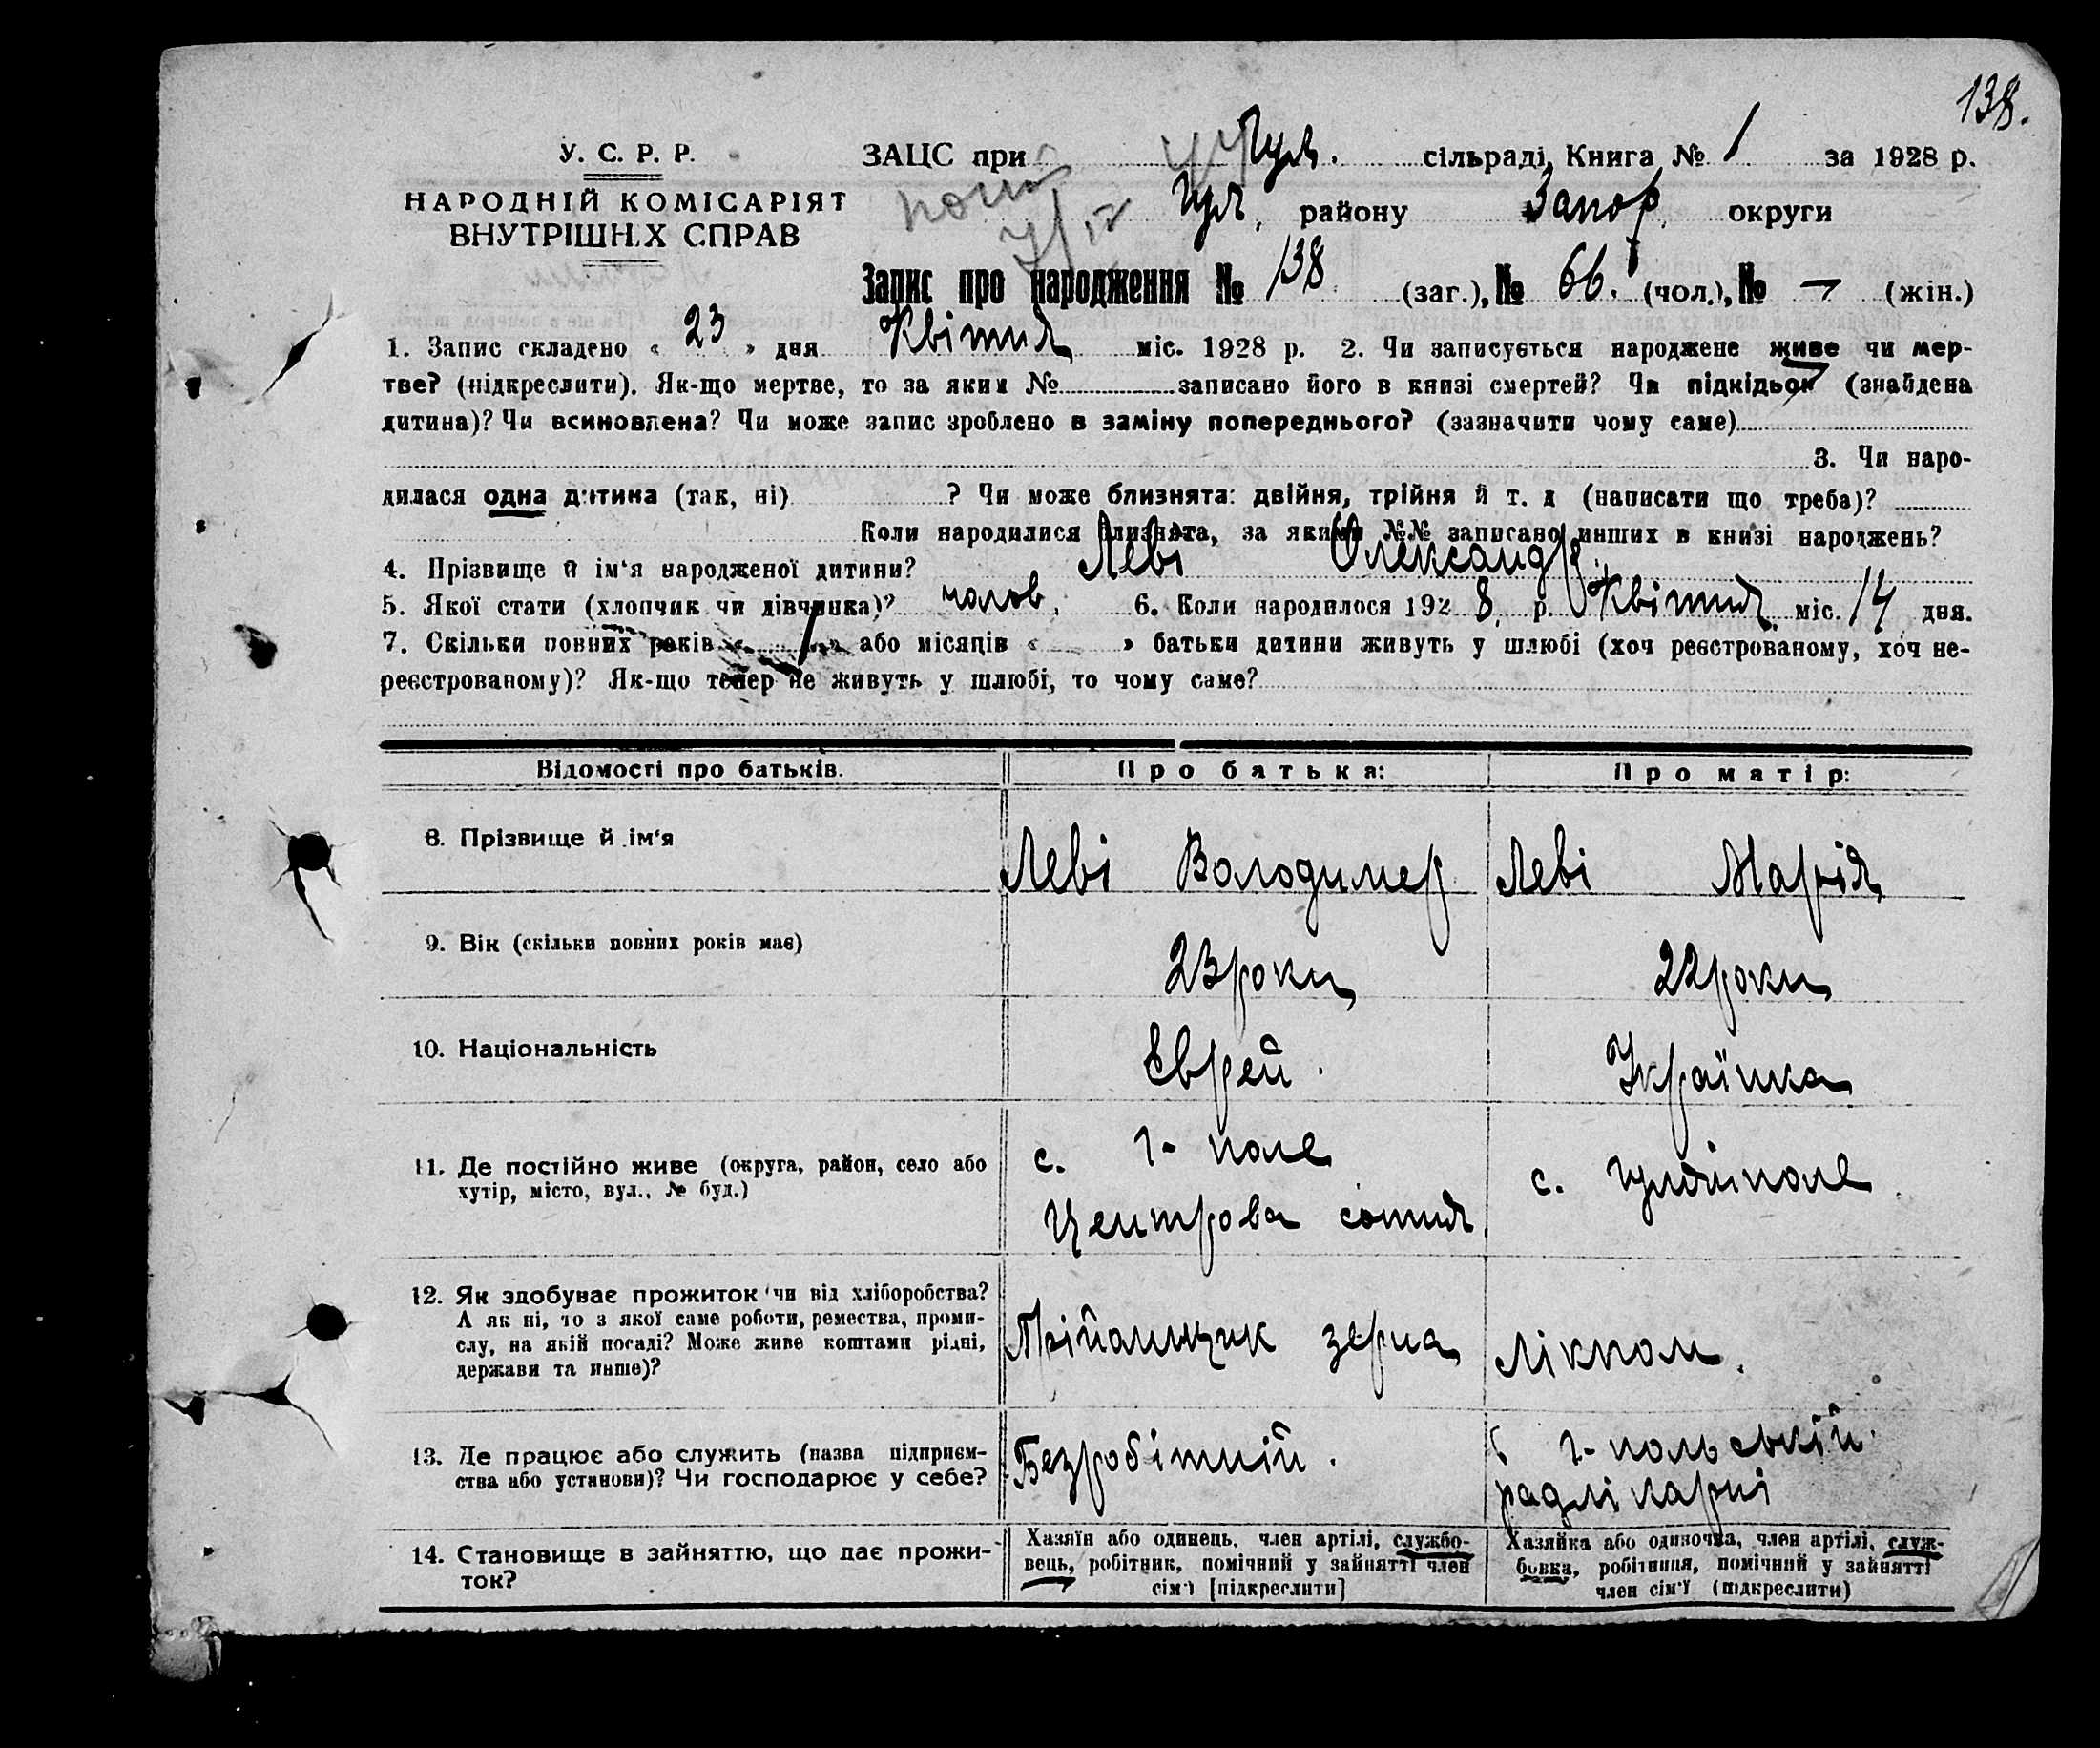 138.
У. С. Р. Р.
НАРОДНІЙ КОМІСАРІЯТ
ВНУТРІШН.Х СПРАВ
ЗАЦС при Гул. сільраді, Книга № 1 за 1928 р.
Гул. району Запор. округи
Запис про народження № 138 (заг.), № 66. (чол.), № — (жін.)
1. Запис складено « 23 » дня Квітня міс. 1928 р. 2. Чи записується народжене живе чи мер-
тве? (підкреслити). Як-що мертве, то за яким № записано його в книзі смертей? Чи підкідьок (знайдена
дитина)? Чи всиновлена? Чи може запис зроблено в заміну попереднього? (зазначити чому саме)
3. Чи наро-
дилася одна дитина (так, ні) ? Чи може близнята: двійня, трійня й т. д (написати що треба)?
Коли народилися близнята, за якими №№ записано инших в книзі народжень?
4. Прізвище й ім‘я народженої дитини? Леві Олександр.
5. Якої стати (хлопчик чи дівчинка)? чолов. 6. Коли народилося 192 8. р. Квітня міс. 14 дня.
7. Скільки повних років « 1 » або місяців « » батьки дитини живуть у шлюбі (хоч реєстрованому, хоч не-
реєстрованому)? Як-що тепер не живуть у шлюбі, то чому саме?
Відомості про батьків. Про батька: Про матір:
8. Прізвище й ім‘я Леві Володимер Леві Марія
9. Вік (скільки повних років має) 23 роки 22 роки
10. Національність Єврей. Українка
11. Де постійно живе (округа, район, село або
хутір, місто, вул., № буд.)
с. Г-поле
Центрова сотня
с. Гуляйполе
12. Як здобуває прожиток чи від хліборобства?
А як ні, то з якої саме роботи, ремества, проми-
слу, на якій посаді? Може живе коштами рідні,
держави та инше)?
Прійомщик зерна
Лікпом.
13. Де працює або служить (назва підприєм-
ства або установи)? Чи господарює у себе?
Безробітній.
Г-польській
радлікарні
14. Становище в зайняттю, що дає прожи-
ток?
Хазяїн або одинець, член артілі, службо-
вець, робітник, помічний у зайнятті член
сім‘ї [підкреслити]
Хазяйка або одиночка, член артілі, служ-
бовка, робітниця, помічний у зайнятті
член сім‘ї (підкреслити)